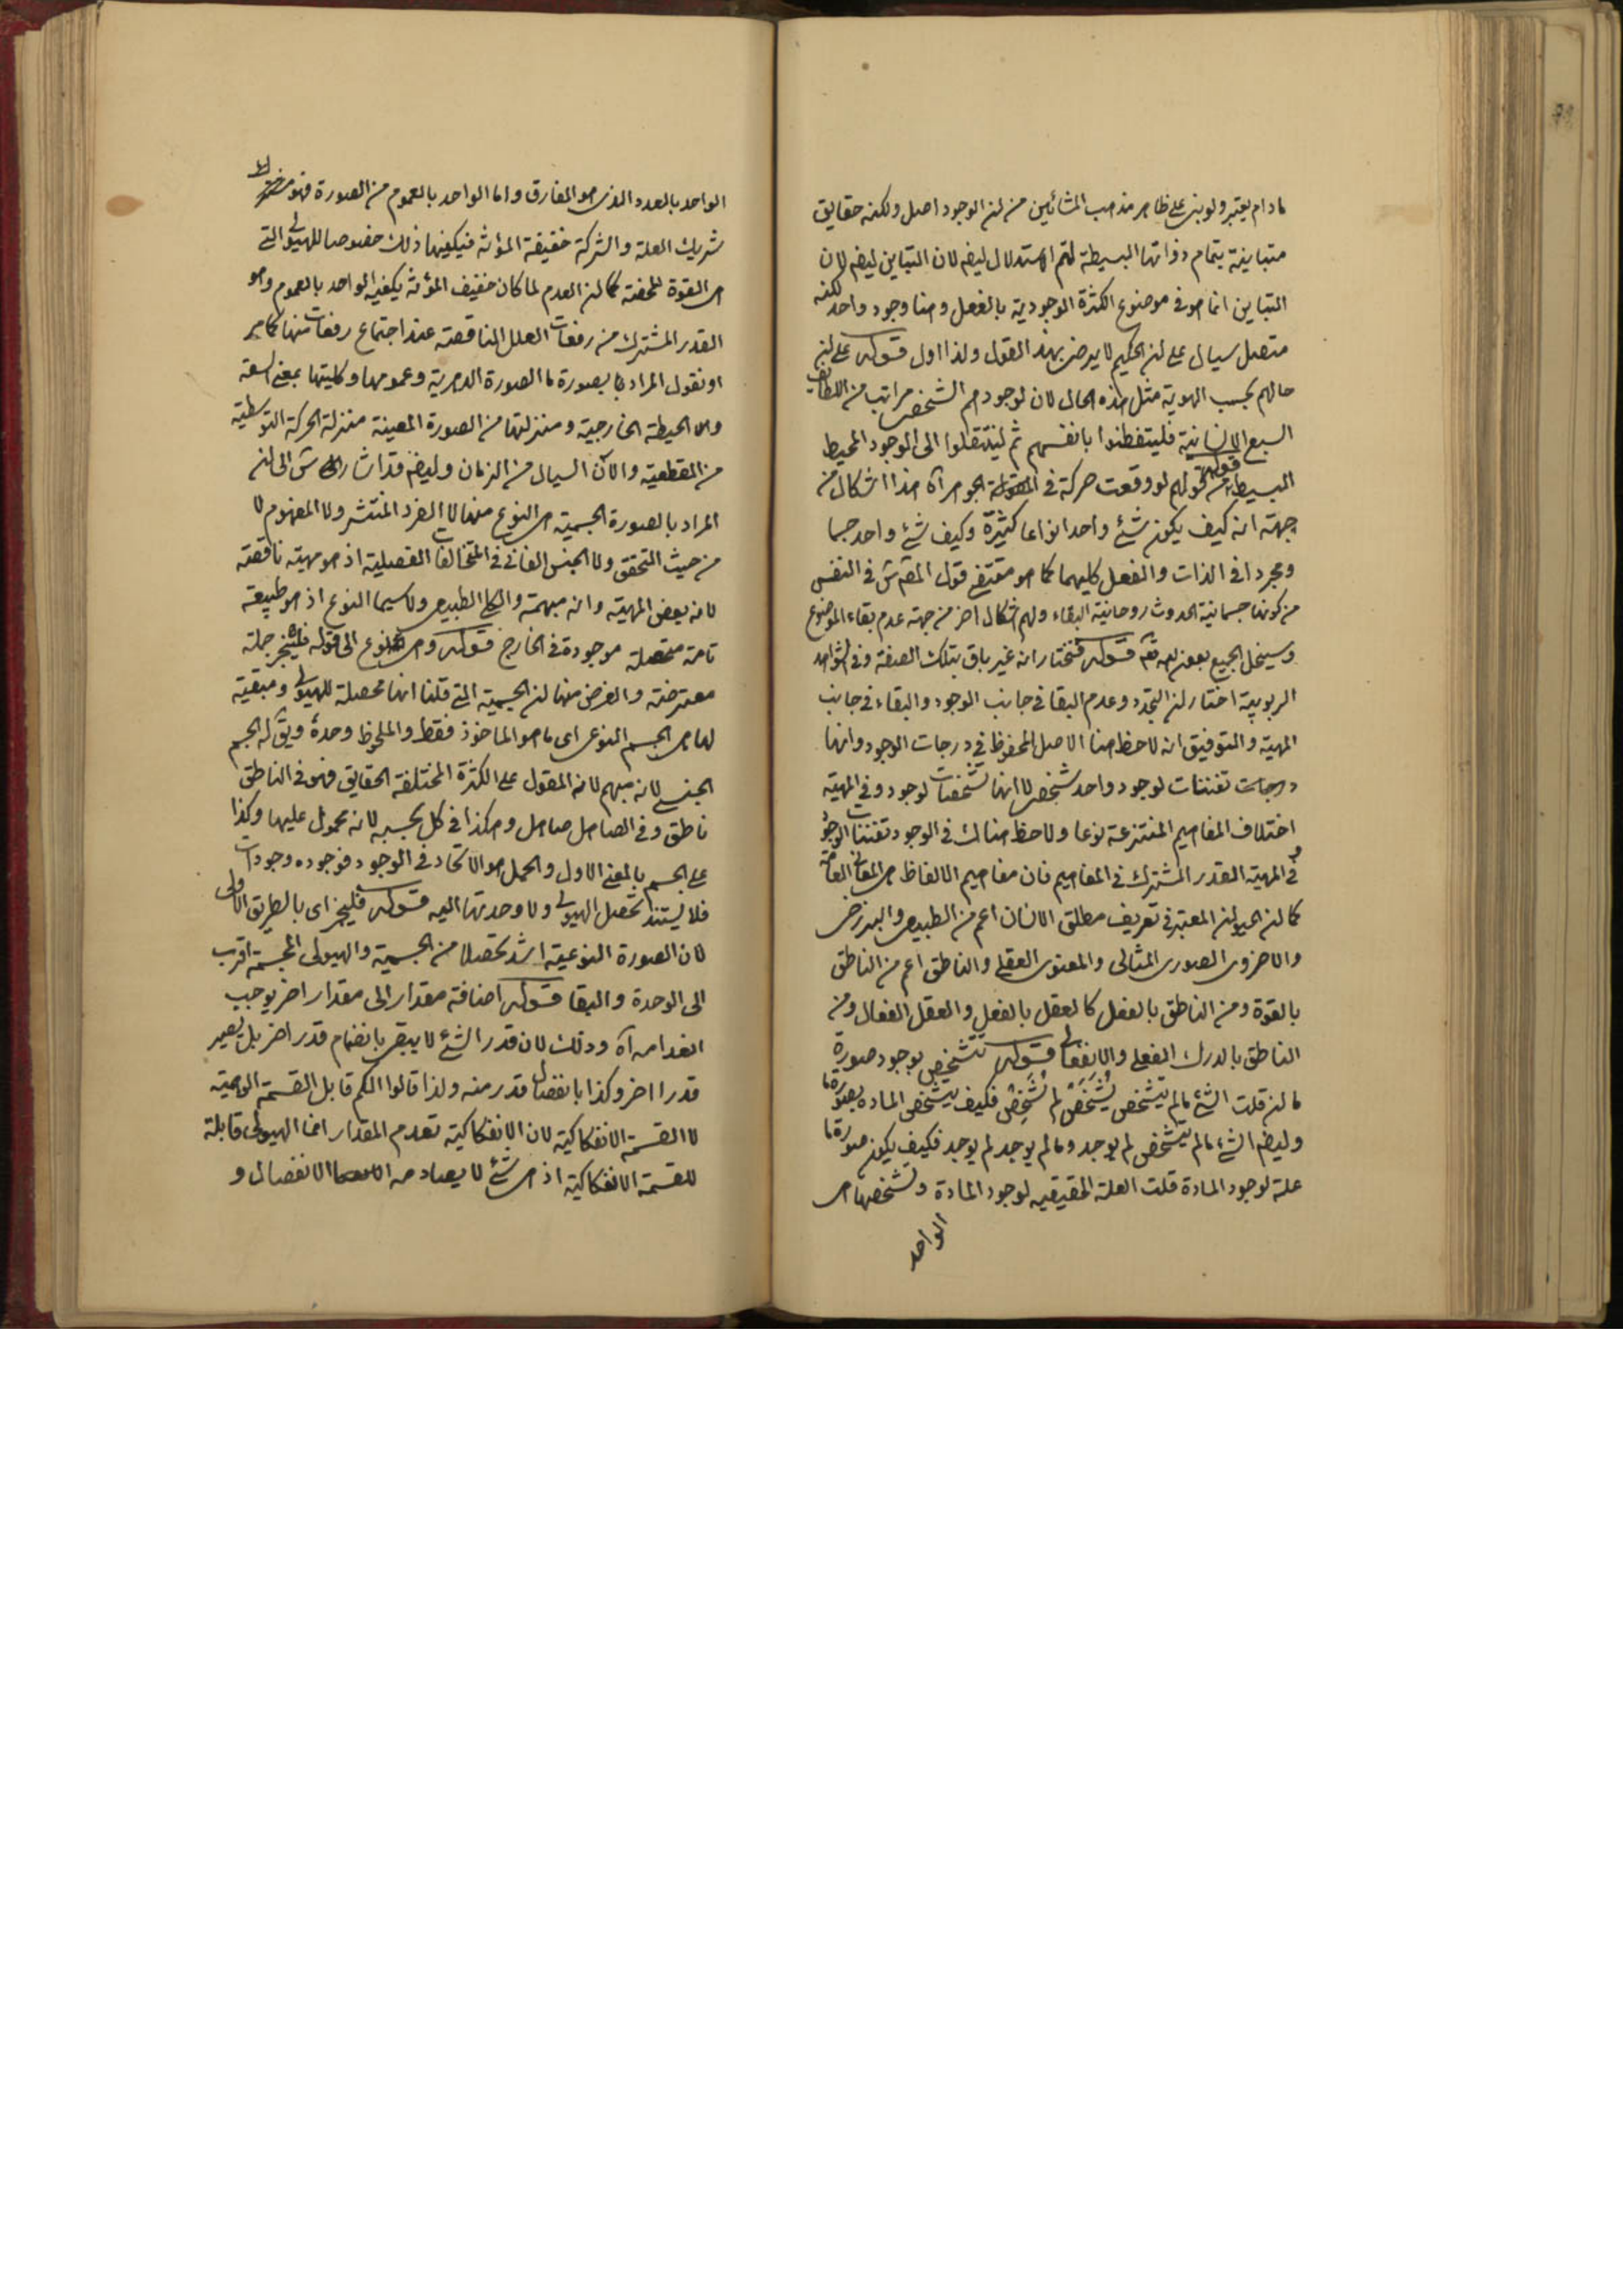 مادام يعتبر ولو بنى على ظاهر مذهب المشائين من ان الوجود اصل ولكنه حقايق
متباينة بتمام ذواتها البسيطة لتم الاستدلال ايضا لان التباين ايضا لان
التباين انما هو فى موضوع الكثرة الوجودية بالفعل وهنا وجود واحد لكنه
متصل سيال على ان الحكيم لا يرضى بهذا القول ولذا اول قوله على ان
حالهم بحسب الهوية مثل هذه الحال لان لوجودهم الشخصى مراتب من اللطائف
السبع الانسانية فليتفطنوا بانفسهم ثم لينتقلوا الى الوجود المحيط
البسيط قوله قولهم لو وقعت حركة فى الجوهر آه هذا اشكال من
جهة انه كيف يكون شئ واحد انواعا كثيرة وكيف شئ واحد جسما
ومجردا فى الذات والفعل كليهما كما هو مقتضى قول المص ش فى النفس
من كونها جسمانية الحدوث روحانية البقاء ولهم اشكال اخر من جهة عدم بقاء الموضوع
وسينحل الجميع بعون الله تع قوله فنختار انه غير باق بتلك الصفة وفى الشواهد
الربوبية اختار ان التجدد وعدم البقا فى جانب الوجود والبقاء فى جانب
المهية والتوفيق انه لاحظ هنا الاصل المحفوظ فى درجات الوجود وانها
درجات تفننات لوجود واحد شخصى لا انها تشخصات لوجود وفى المهية
اختلاف المفاهيم المنتزعة نوعا ولاحظ هناك فى الوجود تفننات الوجود
و فى المهية القدر المشترك فى المفاهيم فان مفاهيم الالفاظ هى المعانى العامة
كما ان الحيوان المعتبر فى تعريف مطلق الانسان اعم من الطبيعى والبرزخى
والاخروى الصورى المثالى والمعنوى العقلى والناطق اعم من الناطق
بالقوة ومن الناطق بالفعل كالعقل بالفعل والعقل الفعال ومن
الناطق بالدرك الفعلى والانفعالى قوله تتشخص بوجود صورة
ما ان قلت الشئ مالم يتشخص لم يشخص فكيف يتشخص المادة بصورة ما
وايضا الشئ مالم يتشخص لم يوجد ومالم يوجد لم يوجد فكيف يكون صورة ما
علة لوجود المادة قلت العلة الحقيقيه لوجود المادة وتشخصها هى
الواحد
الواحد بالعدد الذى هو المفارق واما الواحد بالعموم من الصورة فهو
شريك العلة والشركة خفيفة المؤنة فيكفيها ذلك خصوصا للهيولى التى
هى القوة المحضة كما ان العدم لما كان خفيف المؤنة يكفيه الواحد بالعموم وهو
القدر المشترك من رفعات العلل الناقصة عند اجتماع رفعات منها كما مر
او نقول المراد بصورة ما الصورة الدهرية وعمومها وكليتها بمعنى السعة
والاحيطة الخارجية ومنزلتها من الصورة المعينة منزلة الحركة التوسطية
من القطعية والآن السيال من الزمان وايضا قد اشار ش الى ان
المراد بالصورة الجسمية هى النوع منها لا الفرد المنتشر ولا المفهوم لا
من حيث التحقق ولا الجنس الفانى فى المتخالفات الفصلية اذ هو مهية ناقصة
لانه بعض المهية وانه مبهمة والكلى الطبيعى ولاسيما النوع اذ هو طبيعة
تامة متحصلة موجودة فى الخارج قوله وهى النوع الى قوله فليجز جملة
معترضة والغرض منها ان الجسمية التى قلنا انها محصلة للهيولى ومبقية
لها هى الجسم النوعى اى ما هو الماخوذ فقط والملحوظ وحدة ويق له الجسم
الجنسى لانه مبهم لانه المقول على الكثرة المختلفة الحقايق فهو فى الناطق
ناطق وفى الصاهل صاهل وهكذا فى كل بحسبه لانه محمول عليها وكذا
على الجسم بالمعنى الاول والحمل هو الاتحاد فى الوجود فوجوده وجودات
فلا يستند تحصل الهيولى ولا وحدتها اليه قوله فليجز اى بالطريق الاولى
لان الصورة النوعية اشد تحصلا من الجسمية والهيولى المجسمة اقرب
الى الوحدة والبقا قوله اضافة مقدار الى مقدار اخر يوجب
انعدامه آه وذلك لان قدر الشئ لا يبقى بانضمام قدر اخر بل يصير
قدرا اخر وكذا بانفصال قدر منه ولذا قالوا الكم قابل القسمة الوهمية
لا القسمة الانفكاكية لان الانفكاكية تعدم المقدار انما الهيولى قابلة
للقسمة الانفكاكية اذ هى شئ لا يصادمه الانفصال و